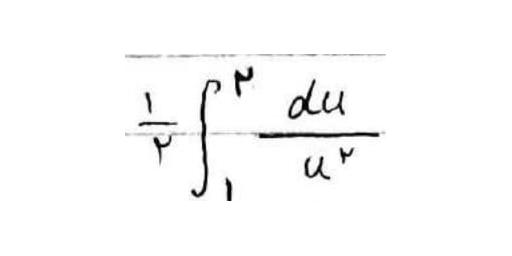 $\frac{۱}{۲} \int_{۱}^{۲} \frac{du}{u^{۲}}$